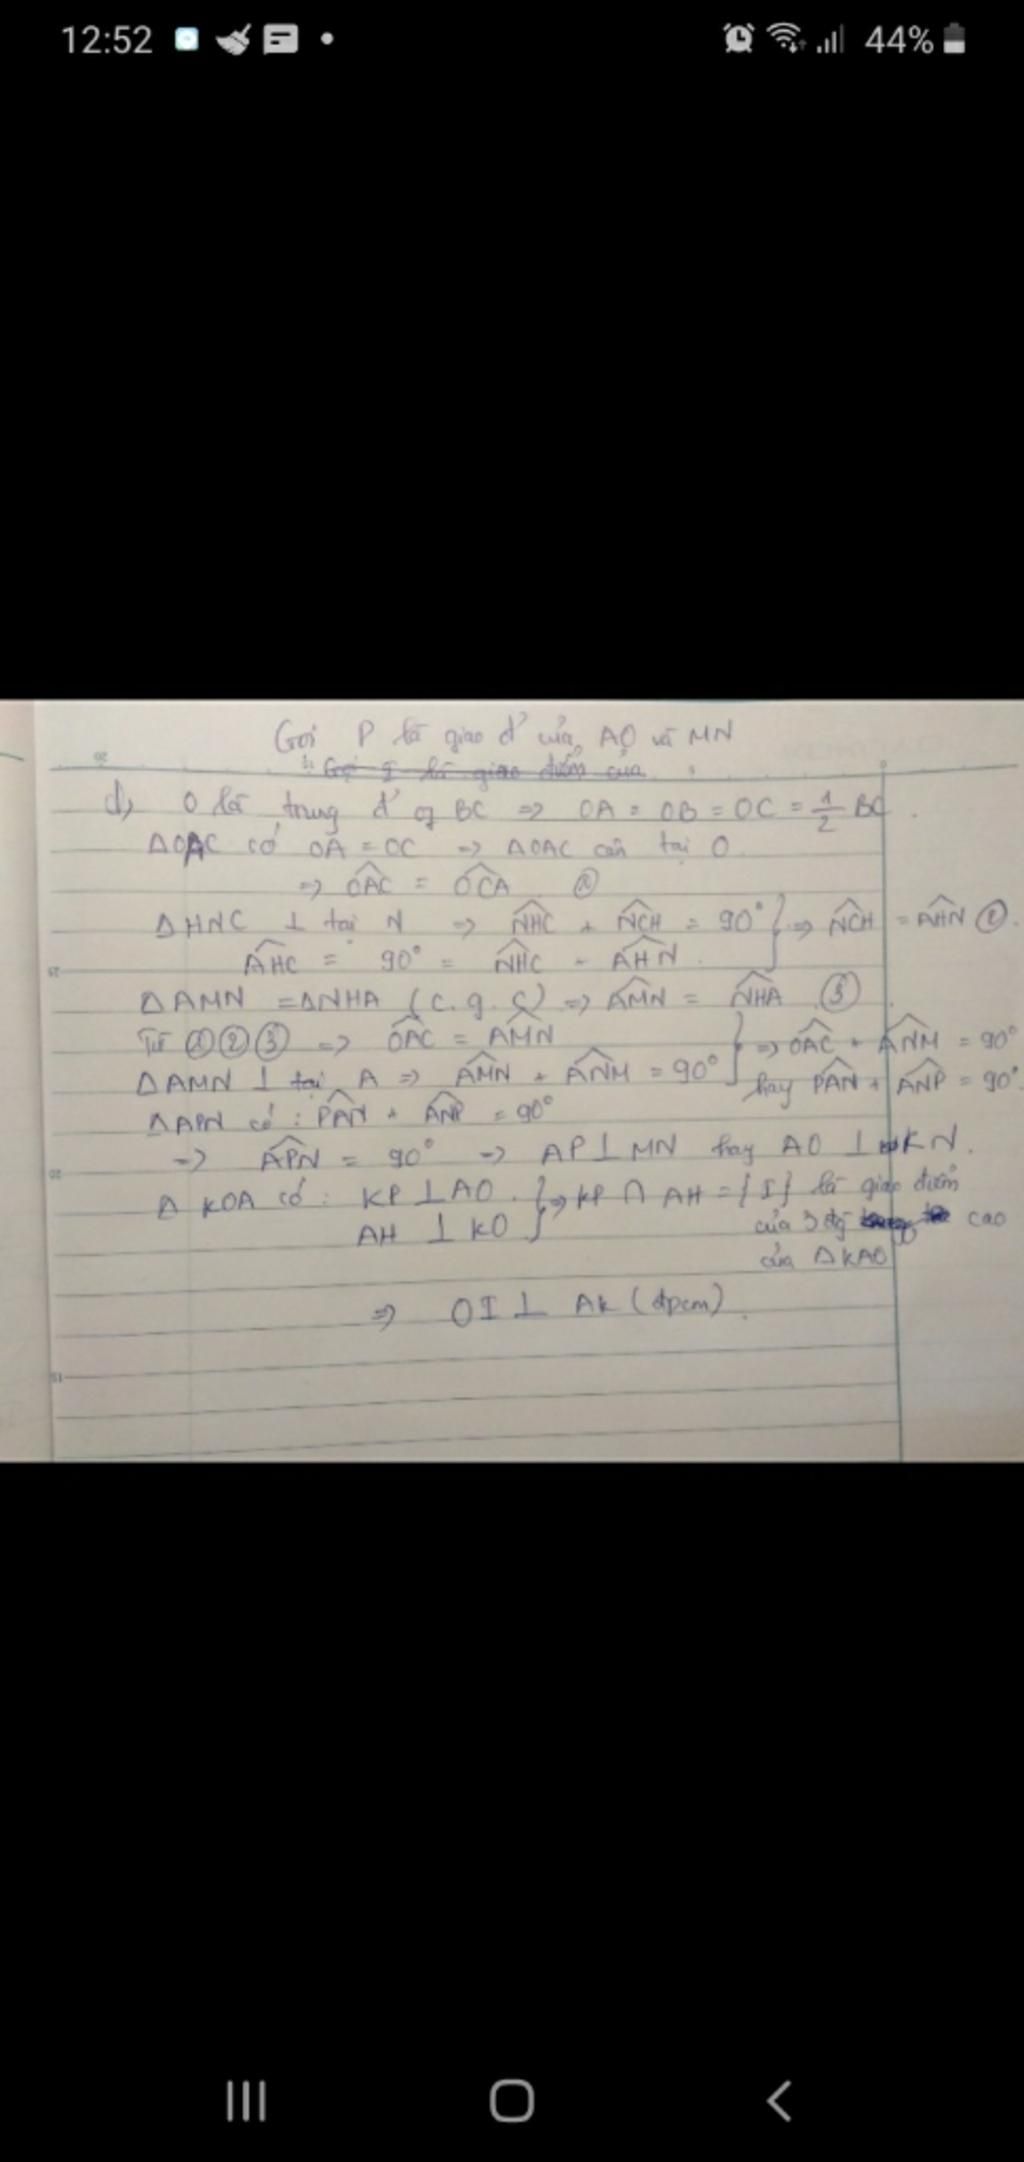 12:52
44%
Gọi P là giao đ' của AO và MN
d) O là trung đ' of BC => OA = OB = OC = 1/2 BC
ΔOAC có OA = OC => ΔOAC cân tại O
=> OAC = OCA ①
ΔHNC ⊥ tại N => NHC + NCH = 90° } => NCH = AHN ②
AHC = 90° = NHC + AHN
ΔAMN = ΔNHA (c.g.c) => AMN = NHA ③
Từ ①②③ => OAC = AMN } => OAC + ANM = 90°
ΔAMN ⊥ tại A => AMN + ANM = 90° hay PAN + ANP = 90°
ΔAPN có : PAN + ANP = 90°
=> APN = 90° => AP ⊥ MN hay AO ⊥ KN.
Δ KOA có : KP ⊥ AO } => KP ∩ AH = {I} là giao điểm
AH ⊥ KO của 3 đg cao
của ΔKAO
=> OI ⊥ AK (đpcm).